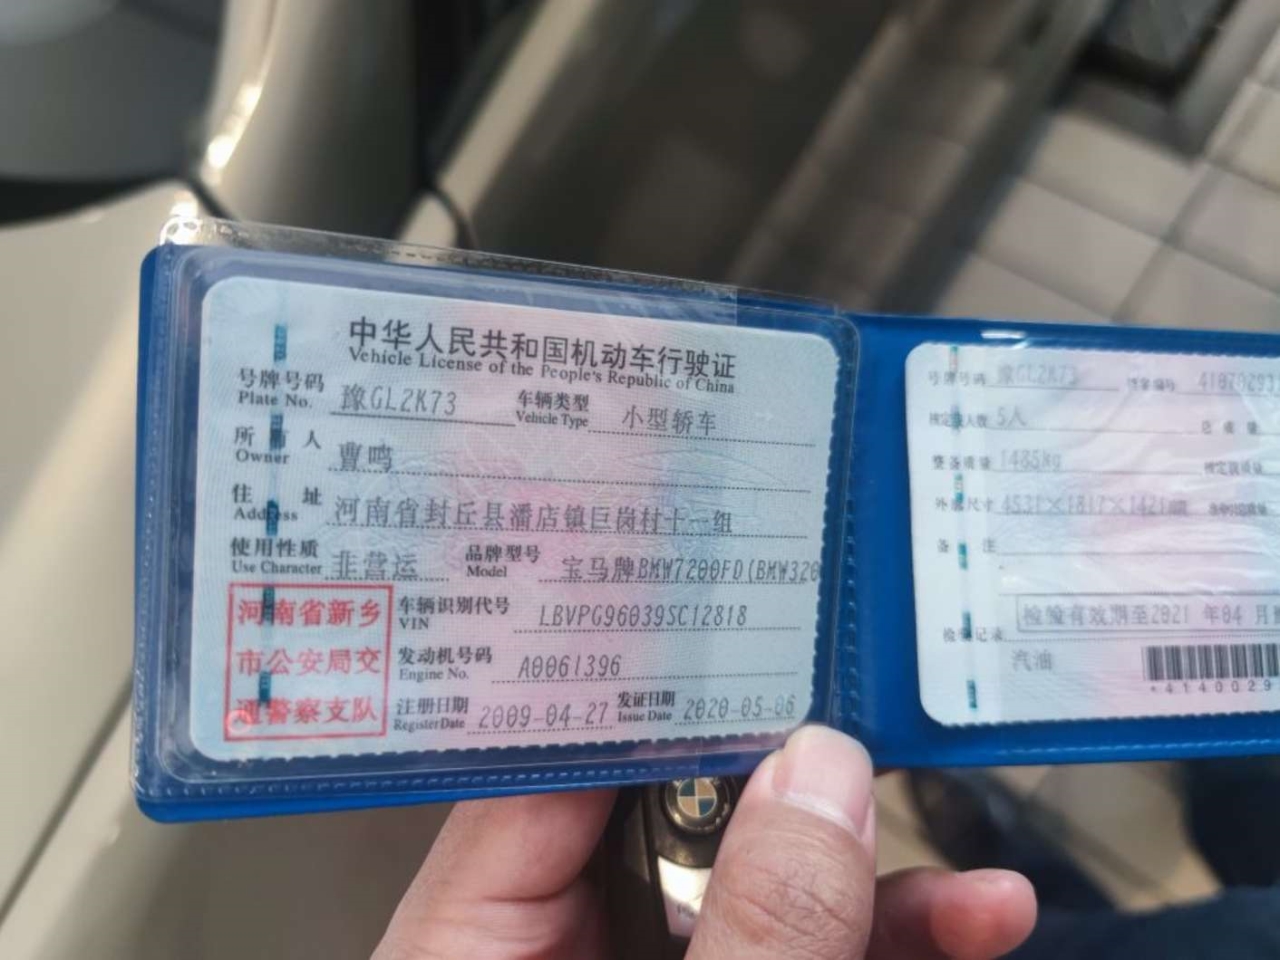 中华人民共和国机动车行驶证
Vehicle License of the People's Republic of China
号牌号码 豫GL2K73 车辆类型 小型轿车
Plate No. Vehicle Type
所有人 曹鸣
Owner
住址 河南省封丘县潘店镇巨岗村十一组
Address
使用性质 非营运 品牌型号 宝马牌BMW7200FD(BMW320
Use Character Model
河南省新乡
市公安局交
通警察支队
车辆识别代号 LBVPG96039SC12818
VIN
发动机号码 A0061396
Engine No.
注册日期 2009-04-27 发证日期 2020-05-06
Register Date Issue Date
号牌号码 豫GL2K73 档案编号 41070293
核定载人数 5人 总质量
整备质量 1485kg 核定载质量
外廓尺寸 4531×1817×1421
备注
检验有效期至2021年04月
检验记录
汽油
*4140029